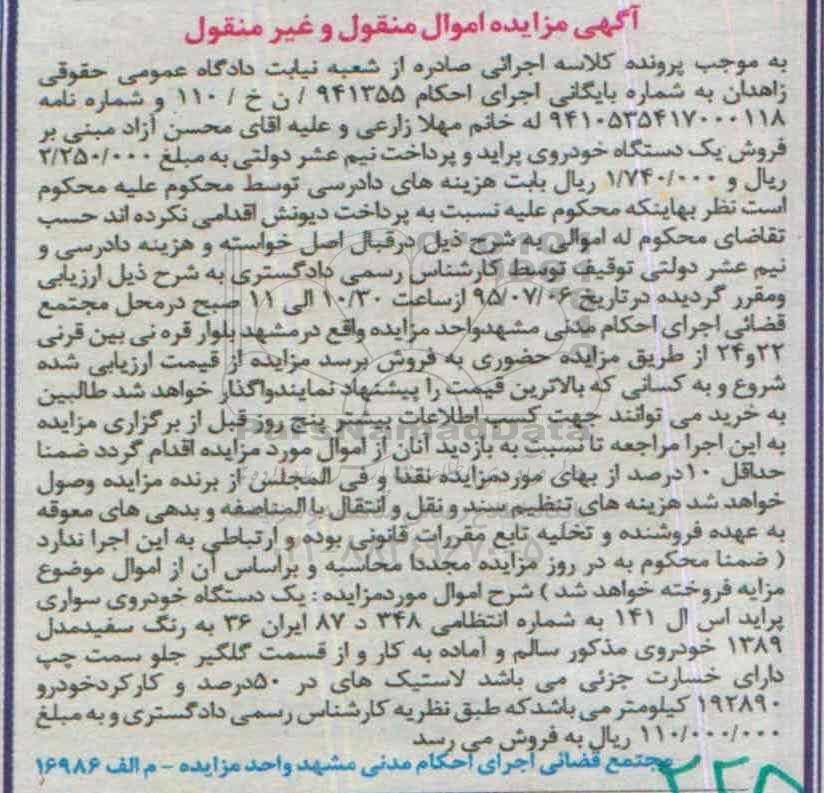 آگهی مزایده اموال منقول و غیر منقول
به موجب پرونده کلاسه اجرائی صادره از شعبه نیابت دادگاه عمومی حقوقی
زاهدان به شماره بایگانی اجرای احکام ۹۴۱۳۵۵ / ن خ / ۱۱۰ و شماره نامه
۹۴۱۰۵۳۵۴۱۷۰۰۰۱۱۸ له خانم مهلا زارعی و علیه اقای محسن آزاد مبنی بر
فروش یک دستگاه خودروی پراید و پرداخت نیم عشر دولتی به مبلغ ۲/۲۵۰/۰۰۰
ریال و ۱/۷۴۰/۰۰۰ ریال بابت هزینه های دادرسی توسط محکوم علیه محکوم
است نظر بهاینکه محکوم علیه نسبت به پرداخت دیونش اقدامی نکرده اند حسب
تقاضای محکوم له اموالی به شرح ذیل درقبال اصل خواسته و هزینه دادرسی و
نیم عشر دولتی توقیف توسط کارشناس رسمی دادگستری به شرح ذیل ارزیابی
ومقرر گردیده درتاریخ ۹۵/۰۷/۰۶ ازساعت ۱۰/۳۰ الی ۱۱ صبح درمحل مجتمع
قضائی اجرای احکام مدنی مشهدواحد مزایده واقع درمشهد بلوار قره نی بین قرنی
۲۲و۲۴ از طریق مزایده حضوری به فروش برسد مزایده از قیمت ارزیابی شده
شروع و به کسانی که بالاترین قیمت را پیشنهاد نمایندواگذار خواهد شد طالبین
به خرید می توانند جهت کسب اطلاعات بیشتر پنج روز قبل از برگزاری مزایده
به این اجرا مراجعه تا نسبت به بازدید آنان از اموال مورد مزایده اقدام گردد ضمنا
حداقل ۱۰درصد از بهای موردمزایده نقدا و فی المجلس از برنده مزایده وصول
خواهد شد هزینه های تنظیم سند و نقل و انتقال بالمناصفه و بدهی های معوقه
به عهده فروشنده و تخلیه تابع مقررات قانونی بوده و ارتباطی به این اجرا ندارد
( ضمنا محکوم به در روز مزایده مجددا محاسبه و براساس آن از اموال موضوع
مزایه فروخته خواهد شد ) شرح اموال موردمزایده : یک دستگاه خودروی سواری
پراید اس ال ۱۴۱ به شماره انتظامی ۳۴۸ د ۸۷ ایران ۳۶ به رنگ سفیدمدل
۱۳۸۹ خودروی مذکور سالم و آماده به کار و از قسمت گلگیر جلو سمت چپ
دارای خسارت جزئی می باشد لاستیک های در ۵۰درصد و کارکردخودرو
۱۹۲۸۹۰ کیلومتر می باشدکه طبق نظریه کارشناس رسمی دادگستری و به مبلغ
۱۱۰/۰۰۰/۰۰۰ ریال به فروش می رسد
مجتمع قضائی اجرای احکام مدنی مشهد واحد مزایده - م الف ۱۶۹۸۶